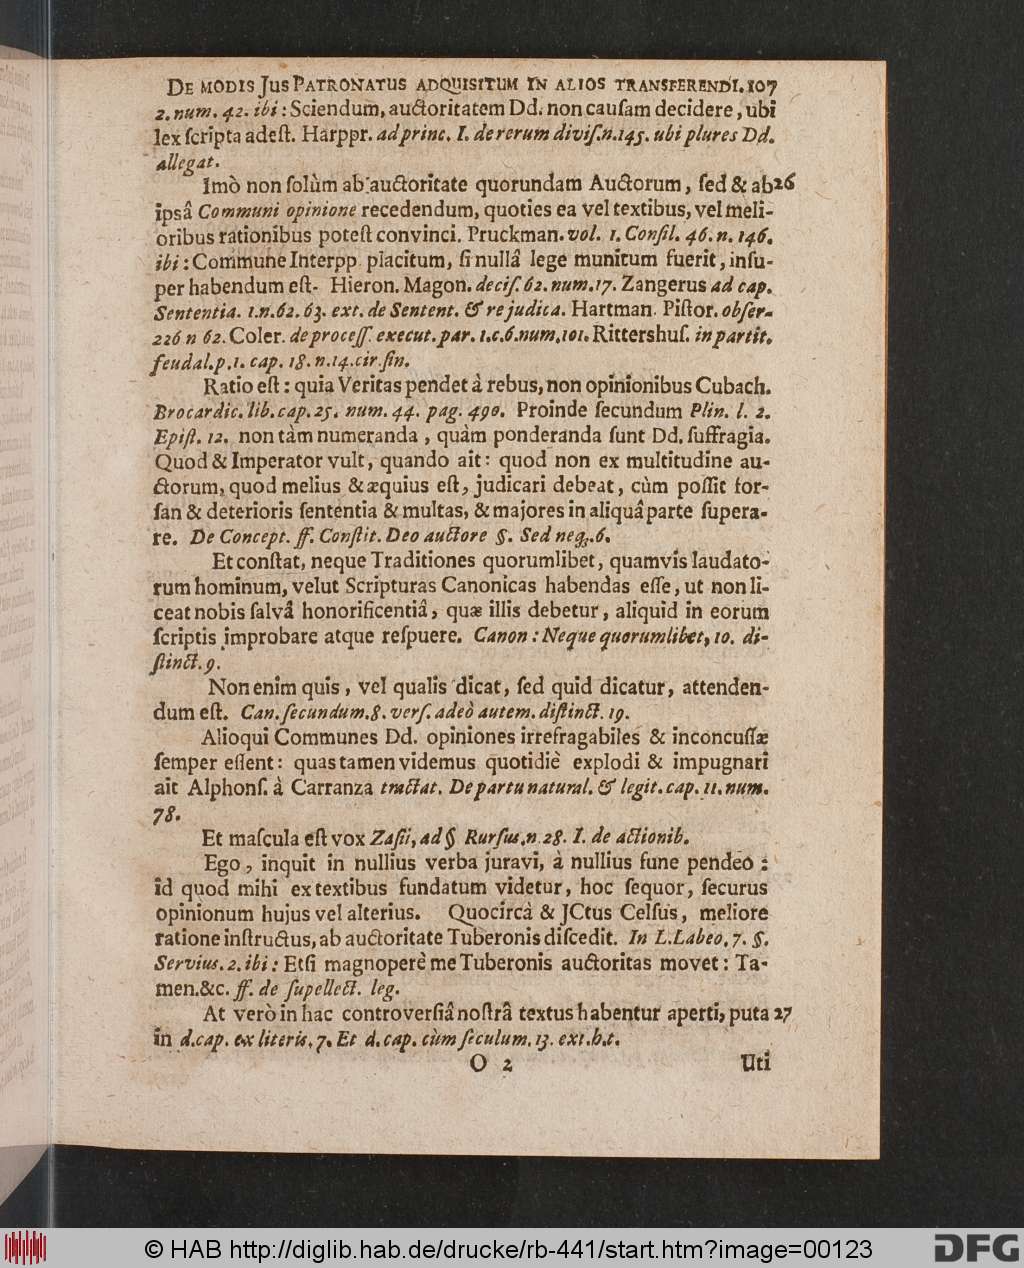 De modis Jus Patronatus adquisitum in alios transferendi. 107
2. num. 42. ibi : Sciendum, auctoritatem Dd. non cauſam decidere, ubi
lex ſcripta adeſt. Harppr. ad princ. I. de rerum diviſ. n. 145. ubi plures Dd.
allegat.
Imò non ſolùm ab auctoritate quorundam Auctorum, ſed & ab 26
ipsâ Communi opinione recedendum, quoties ea vel textibus, vel meli-
oribus rationibus poteſt convinci. Pruckman. vol. 1. Conſil. 46. n. 146.
ibi : Commune Interpp placitum, ſi nullâ lege munitum fuerit, inſu-
per habendum eſt. Hieron. Magon. deciſ. 62. num. 17. Zangerus ad cap.
Sententia. 1. n. 62. 63. ext. de Sentent. & re judica. Hartman. Piſtor. obſer-
226 n 62. Coler. de proceſſ. execut. par. 1. c. 6. num. 101. Rittershuſ. in partit.
feudal. p. 1. cap. 18. n. 14. cir. fin.
Ratio eſt : quia Veritas pendet à rebus, non opinionibus Cubach.
Brocardic. lib. cap. 25. num. 44. pag. 490. Proinde ſecundum Plin. l. 2.
Epiſt. 12. non tàm numeranda, quàm ponderanda ſunt Dd. ſuffragia.
Quod & Imperator vult, quando ait : quod non ex multitudine au-
ctorum, quod melius & æquius eſt, judicari debeat, cùm poſſit for-
ſan & deterioris ſententia & multas, & majores in aliquâ parte ſupera-
re. De Concept. ff. Conſtit. Deo auctore §. Sed neq;. 6.
Et conſtat, neque Traditiones quorumlibet, quamvis laudato-
rum hominum, velut Scripturas Canonicas habendas eſſe, ut non li-
ceat nobis ſalvâ honorificentiâ, quæ illis debetur, aliquid in eorum
ſcriptis improbare atque reſpuere. Canon : Neque quorumlibet, 10. di-
ſtinct. 9.
Non enim quis, vel qualis dicat, ſed quid dicatur, attenden-
dum eſt. Can. ſecundum. 8. verſ. adeò autem. diſtinct. 19.
Alioqui Communes Dd. opiniones irrefragabiles & inconcuſſæ
ſemper eſſent : quas tamen videmus quotidiè explodi & impugnari
ait Alphonſ. à Carranza tractat. De partu natural. & legit. cap. 11. num.
78.
Et maſcula eſt vox Zaſii, ad § Rurſus. n 28. I. de actionib.
Ego, inquit in nullius verba juravi, à nullius fune pendeo :
id quod mihi ex textibus fundatum videtur, hoc ſequor, ſecurus
opinionum hujus vel alterius. Quocircà & JCtus Celſus, meliore
ratione inſtructus, ab auctoritate Tuberonis diſcedit. In L. Labeo. 7. §.
Servius. 2. ibi : Etſi magnoperè me Tuberonis auctoritas movet : Ta-
men. &c. ff. de ſupellect. leg.
At verò in hac controverſiâ noſtrâ textus habentur aperti, puta 27
in d. cap. ex literis. 7. Et d. cap. cùm ſeculum. 13. ext. h. t.
O 2 Uti
© HAB http://diglib.hab.de/drucke/rb-441/start.htm?image=00123 DFG